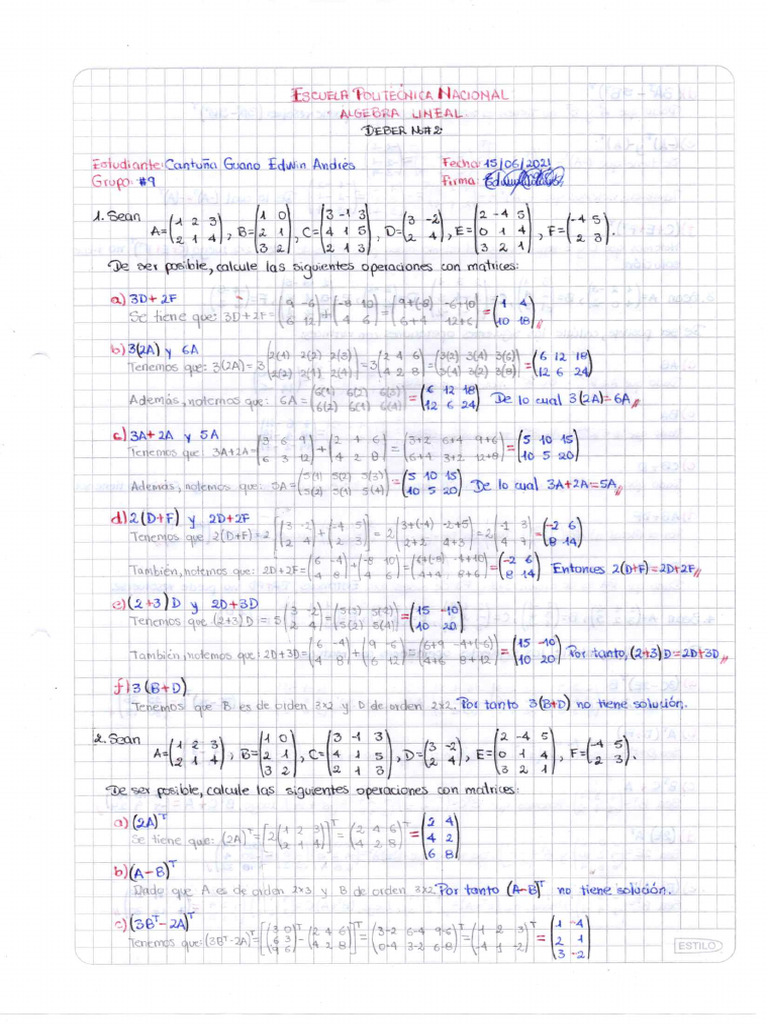 ESCUELA POLITÉCNICA NACIONAL
ALGEBRA LINEAL
DEBER No# 2
Estudiante: Cantuña Guano Edwin Andrés Fecha: 15/06/2021
Grupo: #9 Firma:
1. Sean A=(1 2 3; 2 1 4), B=(1 0; 2 1; 3 2), C=(3 -1 3; 4 1 5; 2 1 3), D=(3 -2; 2 4), E=(2 -4 5; 0 1 4; 3 2 1), F=(-4 5; 2 3).
De ser posible, calcule las siguientes operaciones con matrices:
a) 3D+2F
Se tiene que: 3D+2F=(9 -6; 6 12)+(-8 10; 4 6)=(9+(-8) -6+10; 6+4 12+6)=(1 4; 10 18)//
b) 3(2A) y 6A
Tenemos que: 3(2A)=3(2(1) 2(2) 2(3); 2(2) 2(1) 2(4))=3(2 4 6; 4 2 8)=(3(2) 3(4) 3(6); 3(4) 3(2) 3(8))=(6 12 18; 12 6 24)
Además, notemos que: 6A=(6(1) 6(2) 6(3); 6(2) 6(1) 6(4))=(6 12 18; 12 6 24) De lo cual 3(2A)=6A//
c) 3A+2A y 5A
Tenemos que 3A+2A=(3 6 9; 6 3 12)+(2 4 6; 4 2 8)=(3+2 6+4 9+6; 6+4 3+2 12+8)=(5 10 15; 10 5 20)
Además, notemos que: 5A=(5(1) 5(2) 5(3); 5(2) 5(1) 5(4))=(5 10 15; 10 5 20) De lo cual 3A+2A=5A//
d) 2(D+F) y 2D+2F
Tenemos que 2(D+F)=2[(3 -2; 2 4)+(-4 5; 2 3)]=2(3+(-4) -2+5; 2+2 4+3)=2(-1 3; 4 7)=(-2 6; 8 14)
También, notemos que: 2D+2F=(6 -4; 4 8)+(-8 10; 4 6)=(6+(-8) -4+10; 4+4 8+6)=(-2 6; 8 14) Entonces 2(D+F)=2D+2F//
e) (2+3)D y 2D+3D
Tenemos que (2+3)D=5(3 -2; 2 4)=(5(3) 5(-2); 5(2) 5(4))=(15 -10; 10 20)
También, notemos que: 2D+3D=(6 -4; 4 8)+(9 -6; 6 12)=(6+9 -4+(-6); 4+6 8+12)=(15 -10; 10 20) Por tanto, (2+3)D=2D+3D//
f) 3(B+D)
Tenemos que B es de orden 3x2 y D de orden 2x2. Por tanto 3(B+D) no tiene solución.
2. Sean A=(1 2 3; 2 1 4), B=(1 0; 2 1; 3 2), C=(3 -1 3; 4 1 5; 2 1 3), D=(3 -2; 2 4), E=(2 -4 5; 0 1 4; 3 2 1), F=(-4 5; 2 3).
De ser posible, calcule las siguientes operaciones con matrices:
a) (2A)^T
Se tiene que: (2A)^T=[2(1 2 3; 2 1 4)]^T=(2 4 6; 4 2 8)^T=(2 4; 4 2; 6 8)
b) (A-B)^T
Dado que A es de orden 2x3 y B de orden 3x2. Por tanto (A-B)^T no tiene solución.
c) (3B^T-2A)^T
Tenemos que: (3B^T-2A)^T=[(3 0; 6 3; 9 6)^T-(2 4 6; 4 2 8)]^T=(3-2 6-4 9-6; 0-4 3-2 6-8)^T=(1 2 3; -4 1 -2)^T=(1 -4; 2 1; 3 -2)
ESTILO